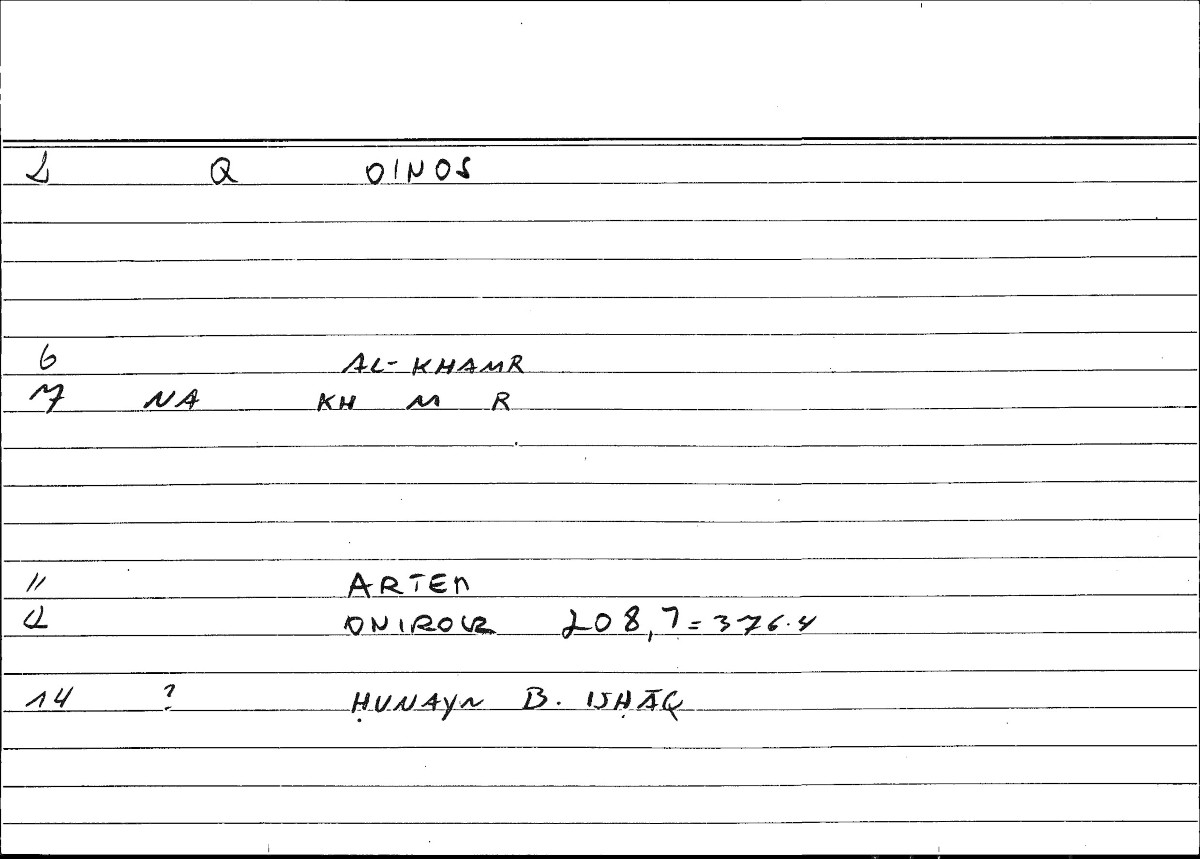 2 Q OINOS
6 AL-KHAMR
7 NA KH M R
11 ARTEM
12 ONIROCR 208,7=376.4
14 ? ḤUNAYN B. ISḤĀQ